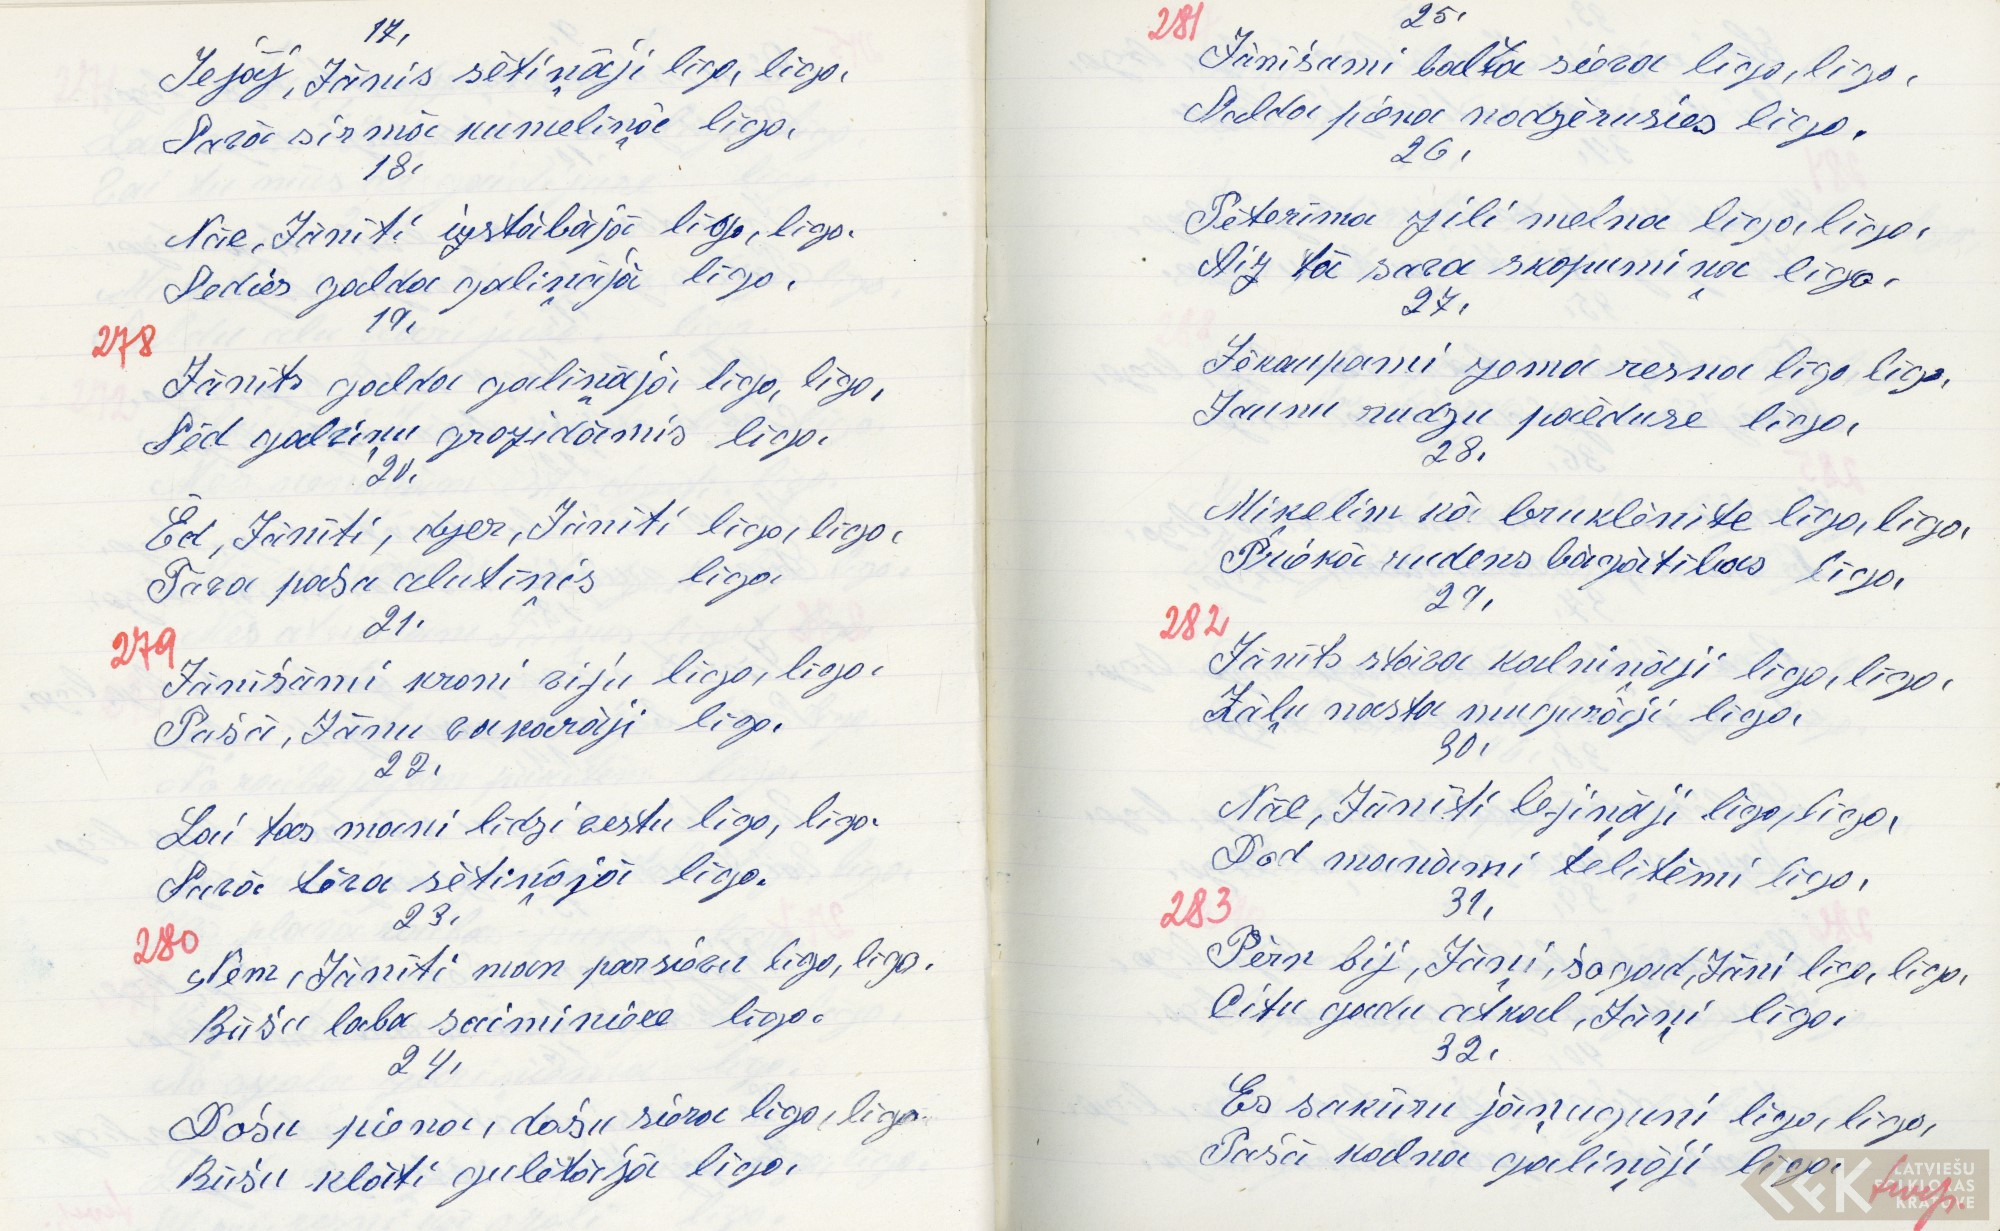 17.
Iejāj, Jānis sētiņāji līgo, līgo.
Savā sirmā kumeliņāi līgo.
18.
Nāc, Jānīti izstābājā līgo, līgo.
Sēdies galda galiņājā līgo.
278
19.
Jānīts galda galiņājā līgo, līgo,
Sēd galviņu grozīdamis līgo.
20.
Ēd, Jānīti, dzer, Jānīti līgo, līgo.
Tava paša alutiņis līgo
279
21.
Jānīšami kroni viju līgo, līgo.
Pašā, Jāņu vakarāji līgo.
22.
Lai tas mani līdzi vestu līgo, līgo.
Savā tēva sētiņājā līgo.
280
23.
Ņem, Jānīti man par sievu līgo, līgo.
Būšu laba saiminiece līgo.
24.
Došu piena, došu siera līgo, līgo.
Būšu klāti gulētājā līgo.
281
25.
Jānīšami balta siera līgo, līgo,
Salda piena nodzērusies līgo.
26.
Pēterima zili melna līgo, līgo,
Aiz tā sava skopumiņa līgo.
27.
Jēkaupami zoma resna līgo, līgo,
Jaunu rudzu paēduse līgo,
28.
Miķelim kā bruklēnite līgo, līgo,
Priekā rudens bāgātības līgo,
282
29.
Jānīts stāva kalniņāji līgo, līgo,
Zāļu nasta mugurāji līgo.
30.
Nāc, Jānīti lejiņāji līgo, līgo,
Dod manāmi telītēmi līgo,
283
31.
Pērn bij, Jāņi, šogad, Jāņi līgo, līgo,
Citu gadu atkal, Jāņi līgo.
32.
Es sakūru jāņuguni līgo, līgo,
Pašā kalna galiņāji līgo.
LATVIEŠU
FOLKLORAS
KRĀTUVE